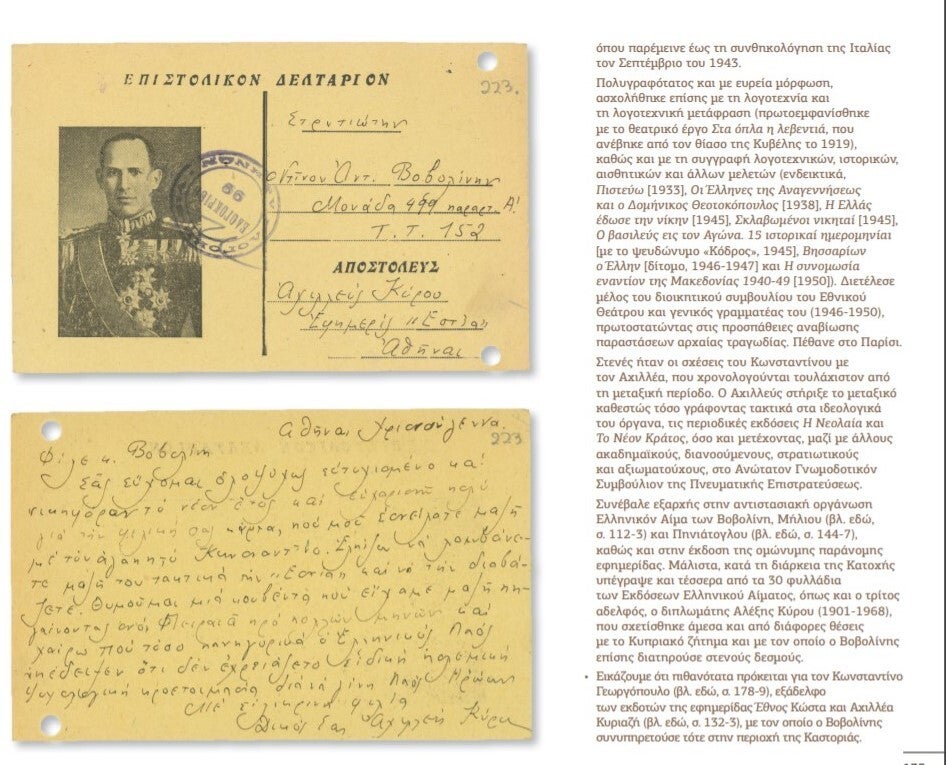 ΕΠΙΣΤΟΛΙΚΟΝ ΔΕΛΤΑΡΙΟΝ
223.
Στρατιώτην
Ντίνον Αντ. Βοβολίνην
Μονάδα 499 παραρτ. Α!
Τ.Τ. 152
ΑΠΟΣΤΟΛΕΥΣ
Αχιλλεύς Κύρου
Εφημερίς "Εστία"
Αθήναι
99
Αθήναι, Χριστούγεννα
223
Φίλε κ. Βοβολίνη
Σας εύχομαι ολοψύχως ευτυχισμένο και
νικηφόρο το νέον έτος και ευχαριστώ πολύ
για την φιλική σας κάρτα, πού μού εστείλατε μαζή
με τον αγαπητό Κωνσταντίνο. Ελπίζω να λαμβάνε-
τε μαζή του τακτικά την "Εστία" και να την διαβά-
ζετε. Θυμούμαι μιά κουβέντα πού είχαμε μαζή πη-
γαίνοντας στον Πειραιά πρό πολλών μηνών και
χαίρω πού τόσο πανηγυρικά ο Ελληνικός Λαός
απέδειξεν ότι δεν εχρειάζετο ειδική πολεμική
ψυχολογική προετοιμασία διά να γίνη Λαός Ηρώων
Με ειλικρινή φιλία
Δικός σας Αχιλλεύς Κύρου
όπου παρέμεινε έως τη συνθηκολόγηση της Ιταλίας
τον Σεπτέμβριο του 1943.
Πολυγραφότατος και με ευρεία μόρφωση,
ασχολήθηκε επίσης με τη λογοτεχνία και
τη λογοτεχνική μετάφραση (πρωτοεμφανίσθηκε
με το θεατρικό έργο Στα όπλα η λεβεντιά, που
ανέβηκε από τον θίασο της Κυβέλης το 1919),
καθώς και με τη συγγραφή λογοτεχνικών, ιστορικών,
αισθητικών και άλλων μελετών (ενδεικτικά,
Πιστεύω [1933], Οι Έλληνες της Αναγεννήσεως
και ο Δομήνικος Θεοτοκόπουλος [1938], Η Ελλάς
έδωσε την νίκην [1945], Σκλαβωμένοι νικηταί [1945],
Ο βασιλεύς εις τον Αγώνα. 15 ιστορικαί ημερομηνίαι
[με το ψευδώνυμο «Κόδρος», 1945], Βησσαρίων
ο Έλλην [δίτομο, 1946-1947] και Η συνομωσία
εναντίον της Μακεδονίας 1940-49 [1950]). Διετέλεσε
μέλος του διοικητικού συμβουλίου του Εθνικού
Θεάτρου και γενικός γραμματέας του (1946-1950),
πρωτοστατώντας στις προσπάθειες αναβίωσης
παραστάσεων αρχαίας τραγωδίας. Πέθανε στο Παρίσι.
Στενές ήταν οι σχέσεις του Κωνσταντίνου με
τον Αχιλλέα, που χρονολογούνται τουλάχιστον από
τη μεταξική περίοδο. Ο Αχιλλεύς στήριξε το μεταξικό
καθεστώς τόσο γράφοντας τακτικά στα ιδεολογικά
του όργανα, τις περιοδικές εκδόσεις Η Νεολαία και
Το Νέον Κράτος, όσο και μετέχοντας, μαζί με άλλους
ακαδημαϊκούς, διανοούμενους, στρατιωτικούς
και αξιωματούχους, στο Ανώτατον Γνωμοδοτικόν
Συμβούλιον της Πνευματικής Επιστρατεύσεως.
Συνέβαλε εξαρχής στην αντιστασιακή οργάνωση
Ελληνικόν Αίμα των Βοβολίνη, Μήλιου (βλ. εδώ,
σ. 112-3) και Πηνιάτογλου (βλ. εδώ, σ. 144-7),
καθώς και στην έκδοση της ομώνυμης παράνομης
εφημερίδας. Μάλιστα, κατά τη διάρκεια της Κατοχής
υπέγραψε και τέσσερα από τα 30 φυλλάδια
των Εκδόσεων Ελληνικού Αίματος, όπως και ο τρίτος
αδελφός, ο διπλωμάτης Αλέξης Κύρου (1901-1968),
που σχετίσθηκε άμεσα και από διάφορες θέσεις
με το Κυπριακό ζήτημα και με τον οποίο ο Βοβολίνης
επίσης διατηρούσε στενούς δεσμούς.
• Εικάζουμε ότι πιθανότατα πρόκειται για τον Κωνσταντίνο
Γεωργόπουλο (βλ. εδώ, σ. 178-9), εξάδελφο
των εκδοτών της εφημερίδας Έθνος Κώστα και Αχιλλέα
Κυριαζή (βλ. εδώ, σ. 132-3), με τον οποίο ο Βοβολίνης
συνυπηρετούσε τότε στην περιοχή της Καστοριάς.